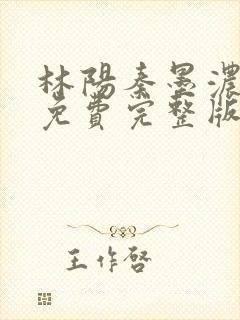 林陽秦墨濃
免費完整版
王作啓